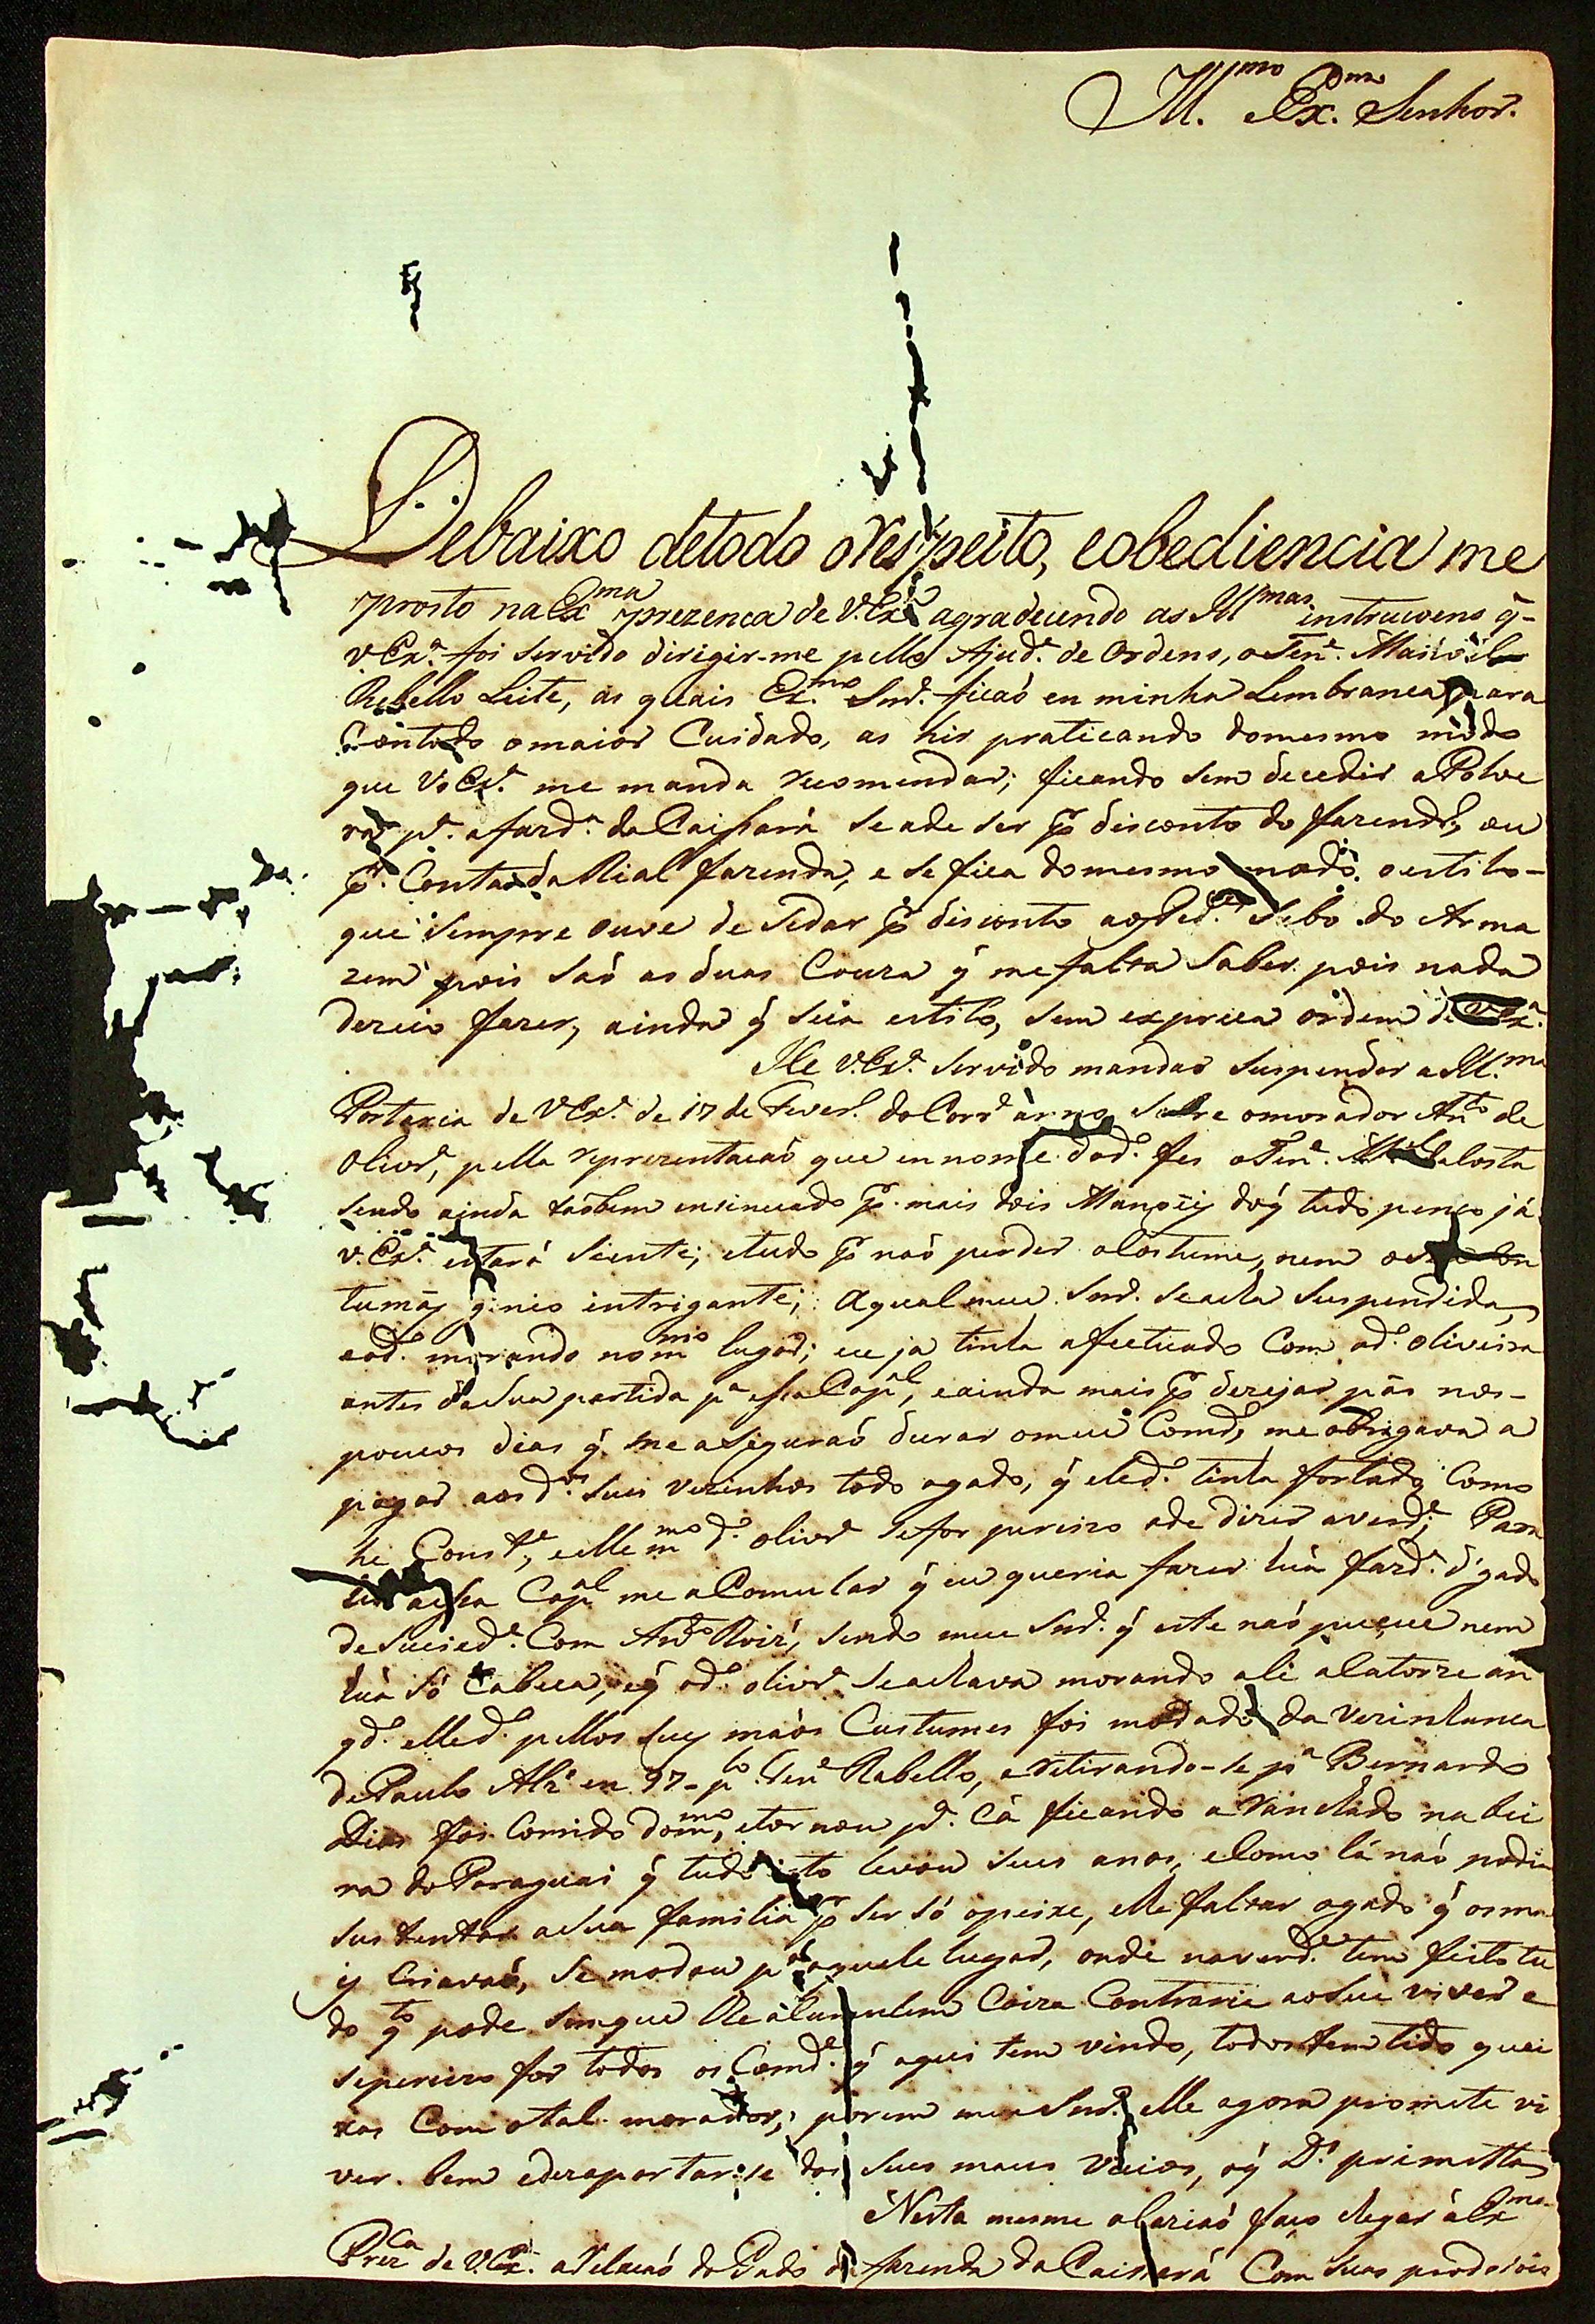 Ill.mo Ex.mo Senhor.
Debaixo detodo orespeito, eobediencia me
prosto naEx.ma prezenca de V.Ex.a agradecendo as Ill.mas instrucoens q̃
VEx.a foi servido dirigir-me pello Ajud.e de Ordens, oTen.e Manoel
Rebello Leite, as quais Ex.mo Snr. ficaó en minha Lembranca para
Contodo omaior Cuidado, as hir praticando domesmo modo
que VoEx.a me manda recomendar; ficando sem decedir aPolve
ra p.a afazd.a daCaissará seade ser p̃ disconto do fazendr.o, ou
p̃.r ContadaRial fazenda, e sefica domesmo modo. oestilo-
que sempre ouve de sedar p̃ disconto Sebo do Arma
zem pois saó as duas Couza q̃ mefalta saber pois nada
dezeio fazer, ainda q̃ seia estilo, sem exprica ordem de VEx.a
He V.Ex.a servido mandar suspender a Ill.ma
Portaria de VEx.a de 17 de Fever.o doCorr.e anno sobre omorador Ant.o de
Olivr.a, pella reprezentacaó que ennome dod.o fes oTen.e M.el daCosta
sendo ainda taobem ensinuado p̃ mais dois doq̃ tudo penço já
v.Ex.a estará siente; etudo p̃ naó perder oCostume, nem
tumãj genio intrigante; Aqual meu Snr. seacha suspendida,
eod.o morando nom.mo lugar; eu ja tinha afectuado Com od.o oliveira
antes dasua partida p.a essaCap.al, eainda mais p̃ dezejar pás nos-
poucos dias q̃ me aseguraó durar omeu Comd.o, me obrigava a
pagar aosd.os seus vezinhos todo ogado, q̃ eled.o tinha fortado Como
he Const.e, eelle m.mo d.o olivr.a sefor precizo ade dizer averd.e; Para
aessa Cap.al me aComular q̃ eu queria fazer hũa fazd.a d'gado
desucied.e Com And.e Roiz', sendo meu Snr. q̃ este naó pucue nem
hũa só Cabeca, eq̃ od.o olivr.a seachava morando ali aCatorze an
qd.o elled.o pellos seus máos Custumes foi modado da Vezinhanca
dePaulo Alz' en 97-p.lo Ten.e Rabello, eretirando-se p.a Bernardo
Dias foi Corrido dom.mo, etornou p.a Cá ficando aranchado na bei
ra doParaguai q̃ tudo isto levou seus anos, eComo lá naó podia
sustentar asua familia p̃ ser só opeixe, elhe faltar ogado q̃ osma
ij Criavaó, se modou p.a aquele lugar, onde naverd.e tem feito tu
do q.to pode semque lhe aComulem Coiza Contraria aoseu viver e
sepercizo for todos os Comd.es q̃ aqui tem vindo, todos tem tido quei
xas Com otal morador; porem meu Snr. elle agora promete vi
ver bem edezapartarse dos seus maus Vicios, oq̃ D.s primitta
Nesta mesma oCaziaó faço chegar áEx.ma
Prez.ca de V.Ex.a aRelacaó doGado da fazenda daCaissará Com suas prodosois